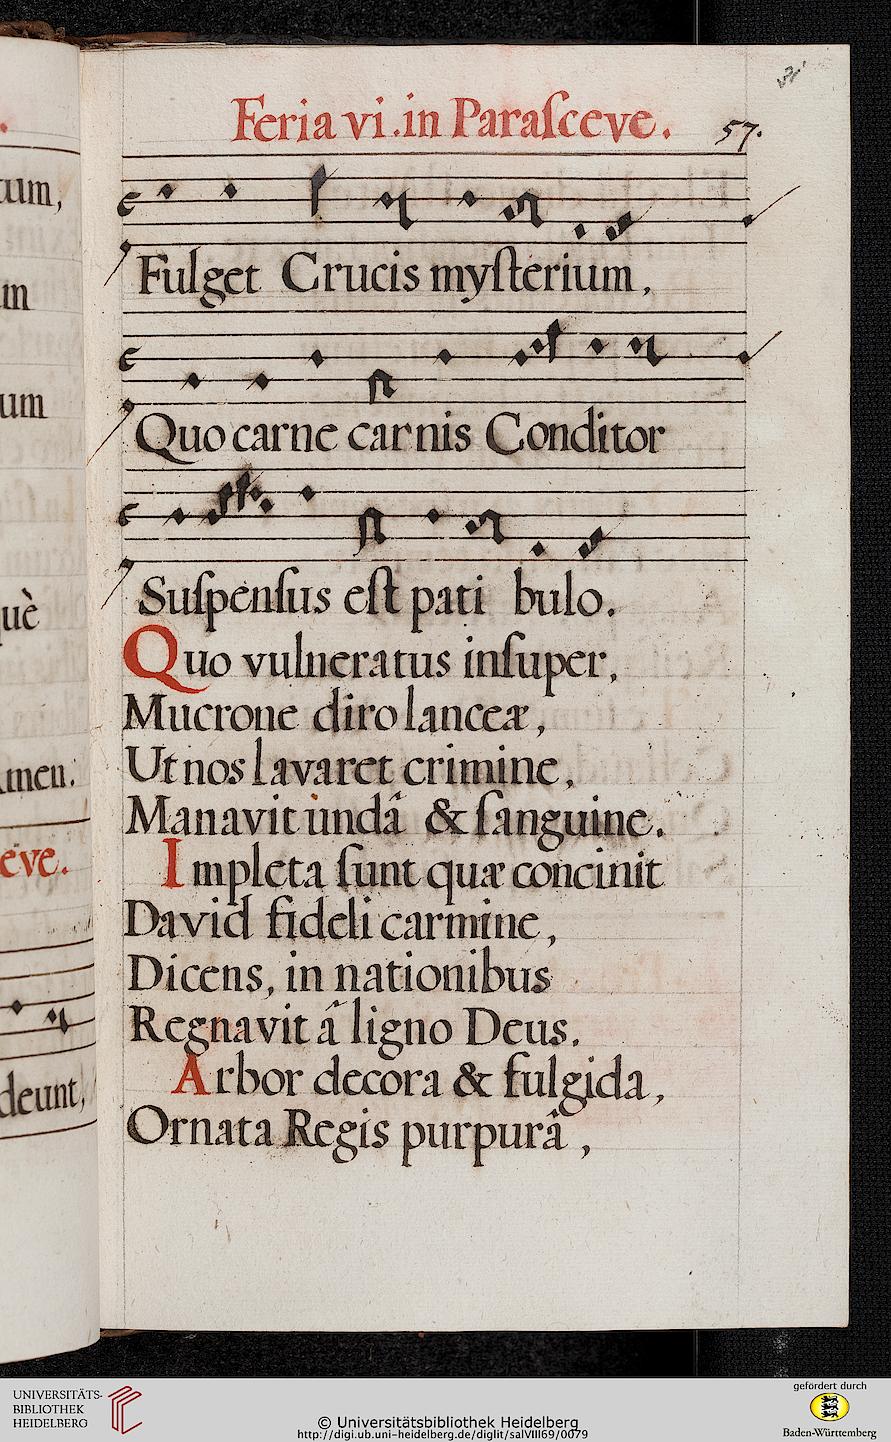 tum,
m
um
uè
men.
eve.
deunt,
31
Feria vi. in Paraſceve. 57.
Fulget Crucis myſterium,
Quo carne carnis Conditor
Suſpenſus eſt pati bulo.
Quo vulneratus inſuper,
Mucrone diro lanceæ,
Ut nos lavaret crimine,
Manavit undâ & ſanguine.
Impleta ſunt quæ concinit
David fideli carmine,
Dicens, in nationibus
Regnavit â ligno Deus.
Arbor decora & fulgida,
Ornata Regis purpurâ,
UNIVERSITÄTS-
BIBLIOTHEK
HEIDELBERG
© Universitätsbibliothek Heidelberg
http://digi.ub.uni-heidelberg.de/diglit/salVIII69/0079
gefördert durch
Baden-Württemberg